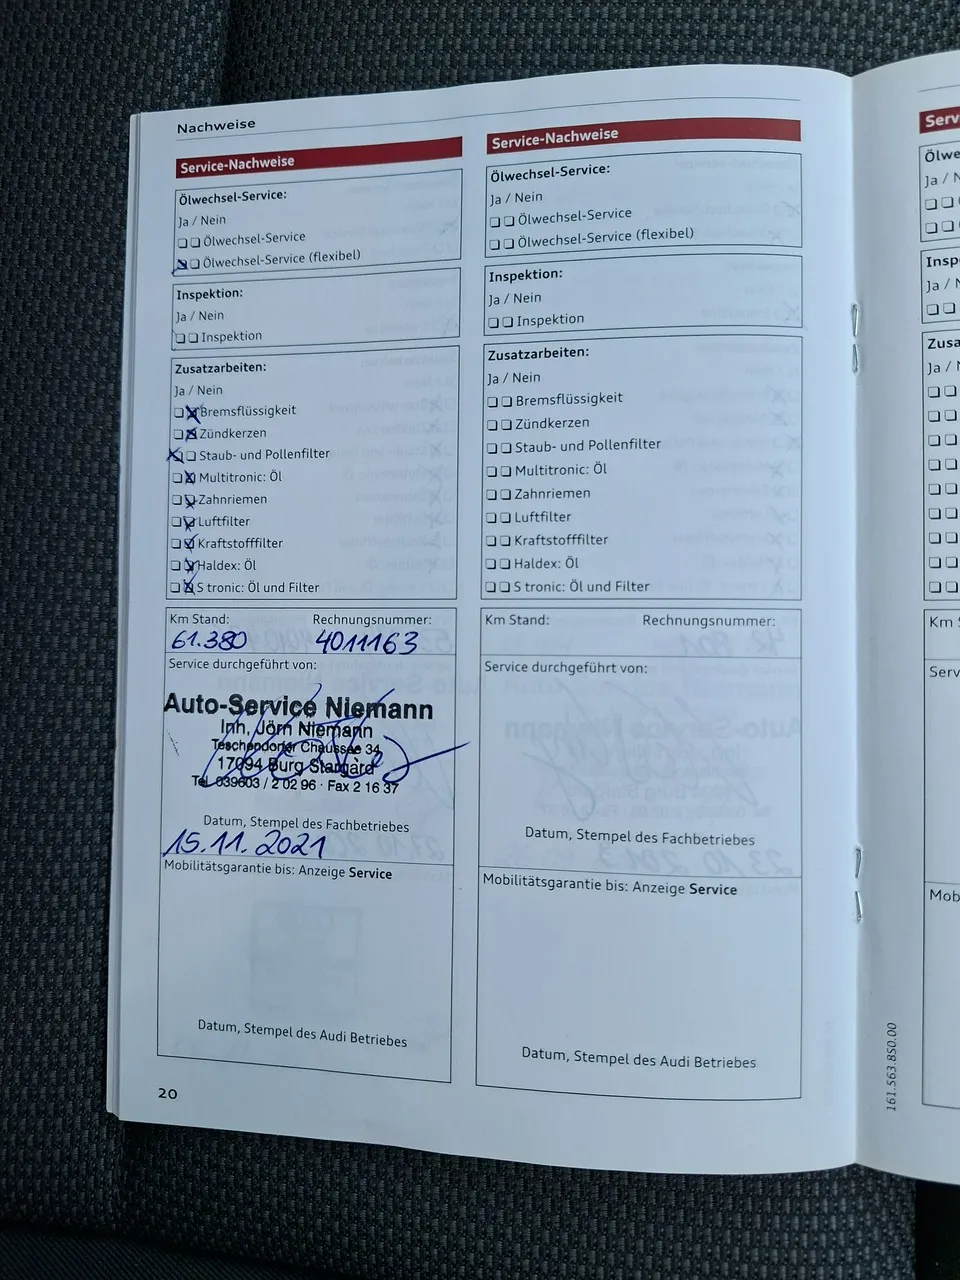 Nachweise
Service-Nachweise
Ölwechsel-Service:
Ja / Nein
Ölwechsel-Service
Ölwechsel-Service (flexibel)
Inspektion:
Ja / Nein
Inspektion
Zusatzarbeiten:
Ja / Nein
Bremsflüssigkeit
Zündkerzen
Staub- und Pollenfilter
Multitronic: Öl
Zahnriemen
Luftfilter
Kraftstofffilter
Haldex: Öl
S tronic: Öl und Filter
Km Stand: Rechnungsnummer:
61.380 4011163
Service durchgeführt von:
Auto-Service Niemann
Inh. Jörn Niemann
Teschendorfer Chaussee 34
17094 Burg Stargard
Tel. 039603 / 2 02 96 · Fax 2 16 37
Datum, Stempel des Fachbetriebes
15.11.2021
Mobilitätsgarantie bis: Anzeige Service
Datum, Stempel des Audi Betriebes
20
Service-Nachweise
Ölwechsel-Service:
Ja / Nein
Ölwechsel-Service
Ölwechsel-Service (flexibel)
Inspektion:
Ja / Nein
Inspektion
Zusatzarbeiten:
Ja / Nein
Bremsflüssigkeit
Zündkerzen
Staub- und Pollenfilter
Multitronic: Öl
Zahnriemen
Luftfilter
Kraftstofffilter
Haldex: Öl
S tronic: Öl und Filter
Km Stand: Rechnungsnummer:
Service durchgeführt von:
Datum, Stempel des Fachbetriebes
Mobilitätsgarantie bis: Anzeige Service
Datum, Stempel des Audi Betriebes
161.563.850.00
Serv
Ölwe
Ja / N
Insp
Ja / N
Zusa
Ja / N
Km S
Serv
Mob